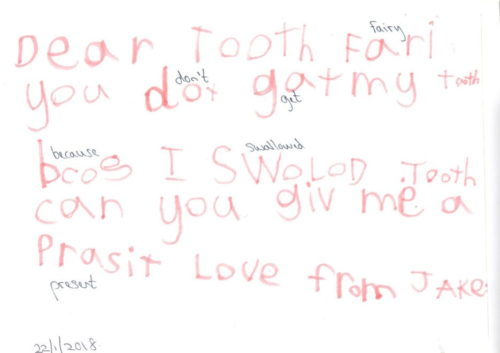 Dear Tooth Fari
fairy
you dot gat my tooth
don't
get
because
swallowed
bcos I SWOLOD .Tooth
can you giv me a
Prasit Love from JAKE
present
22/1/2018